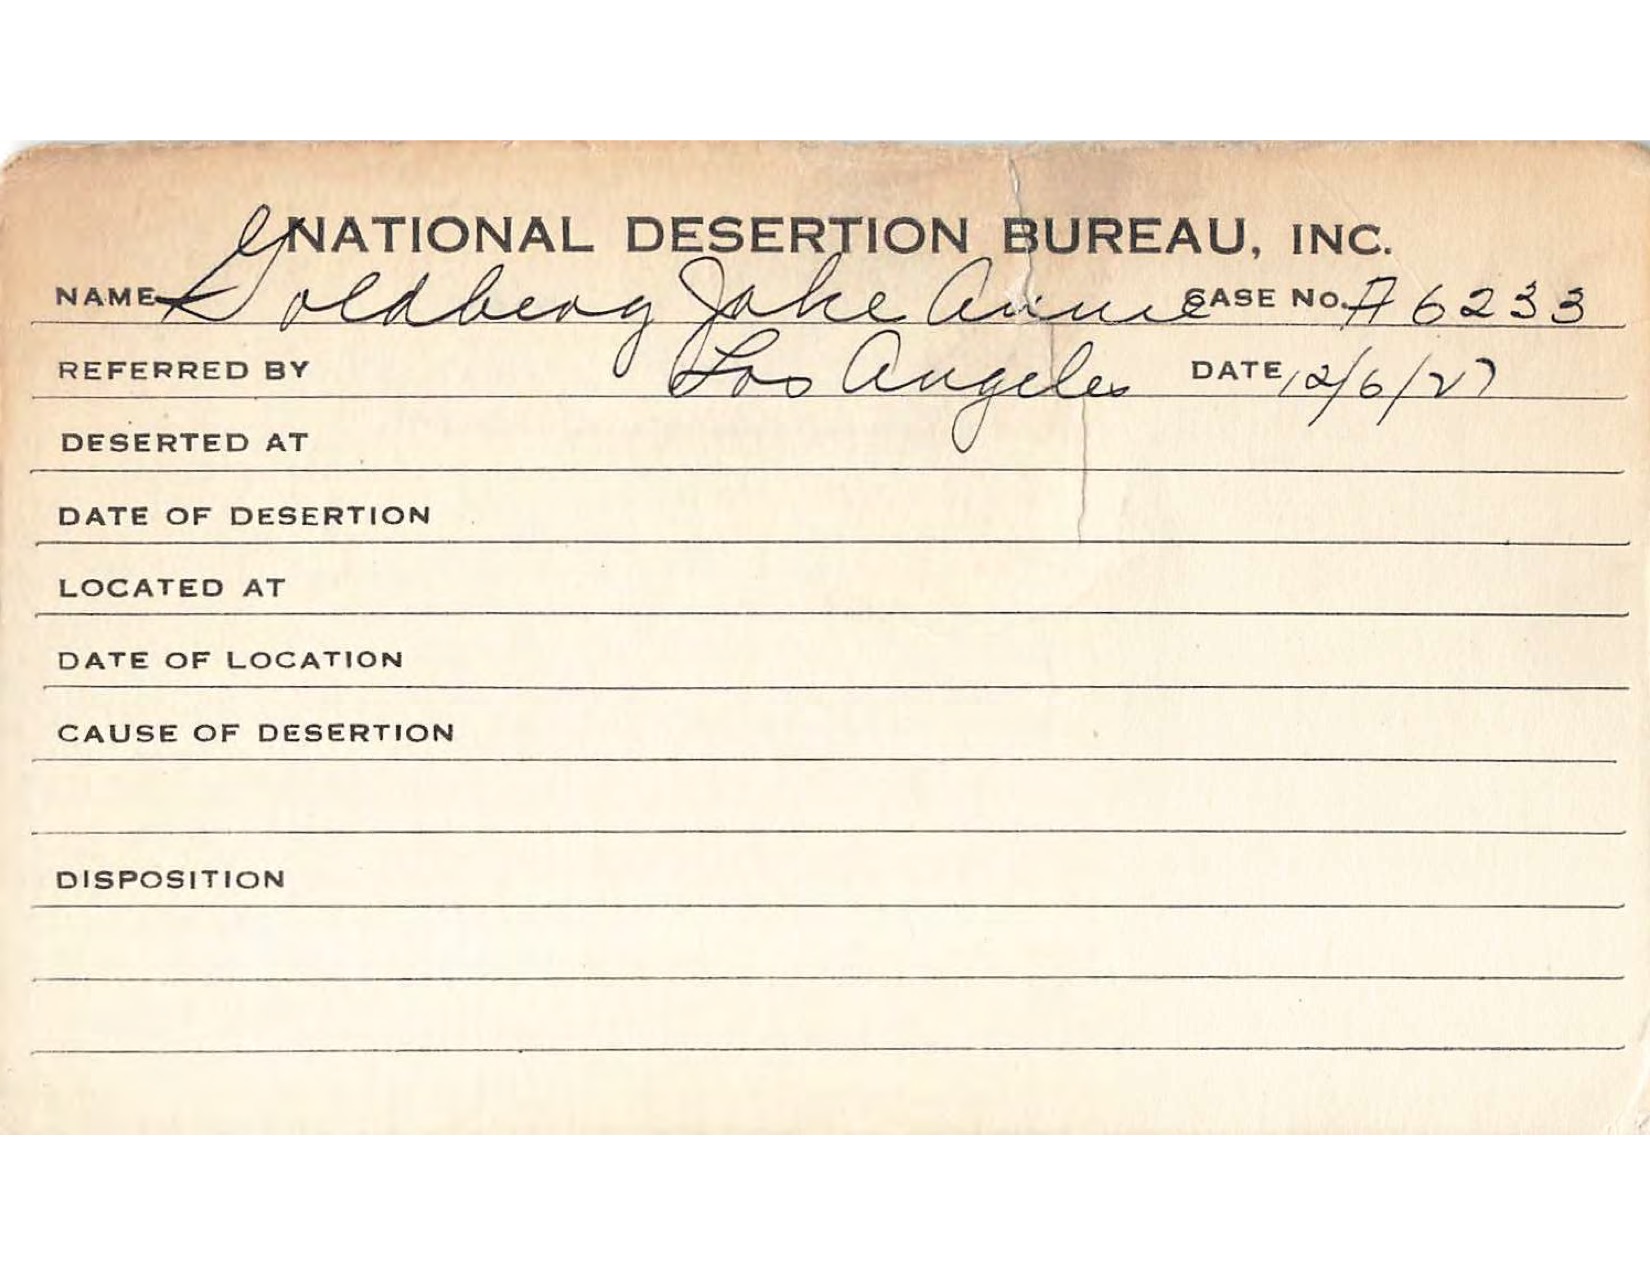 NATIONAL DESERTION BUREAU, INC.
NAME Goldberg Jake Annie CASE NO. A6233
REFERRED BY Los Angeles DATE 12/6/27
DESERTED AT
DATE OF DESERTION
LOCATED AT
DATE OF LOCATION
CAUSE OF DESERTION
DISPOSITION